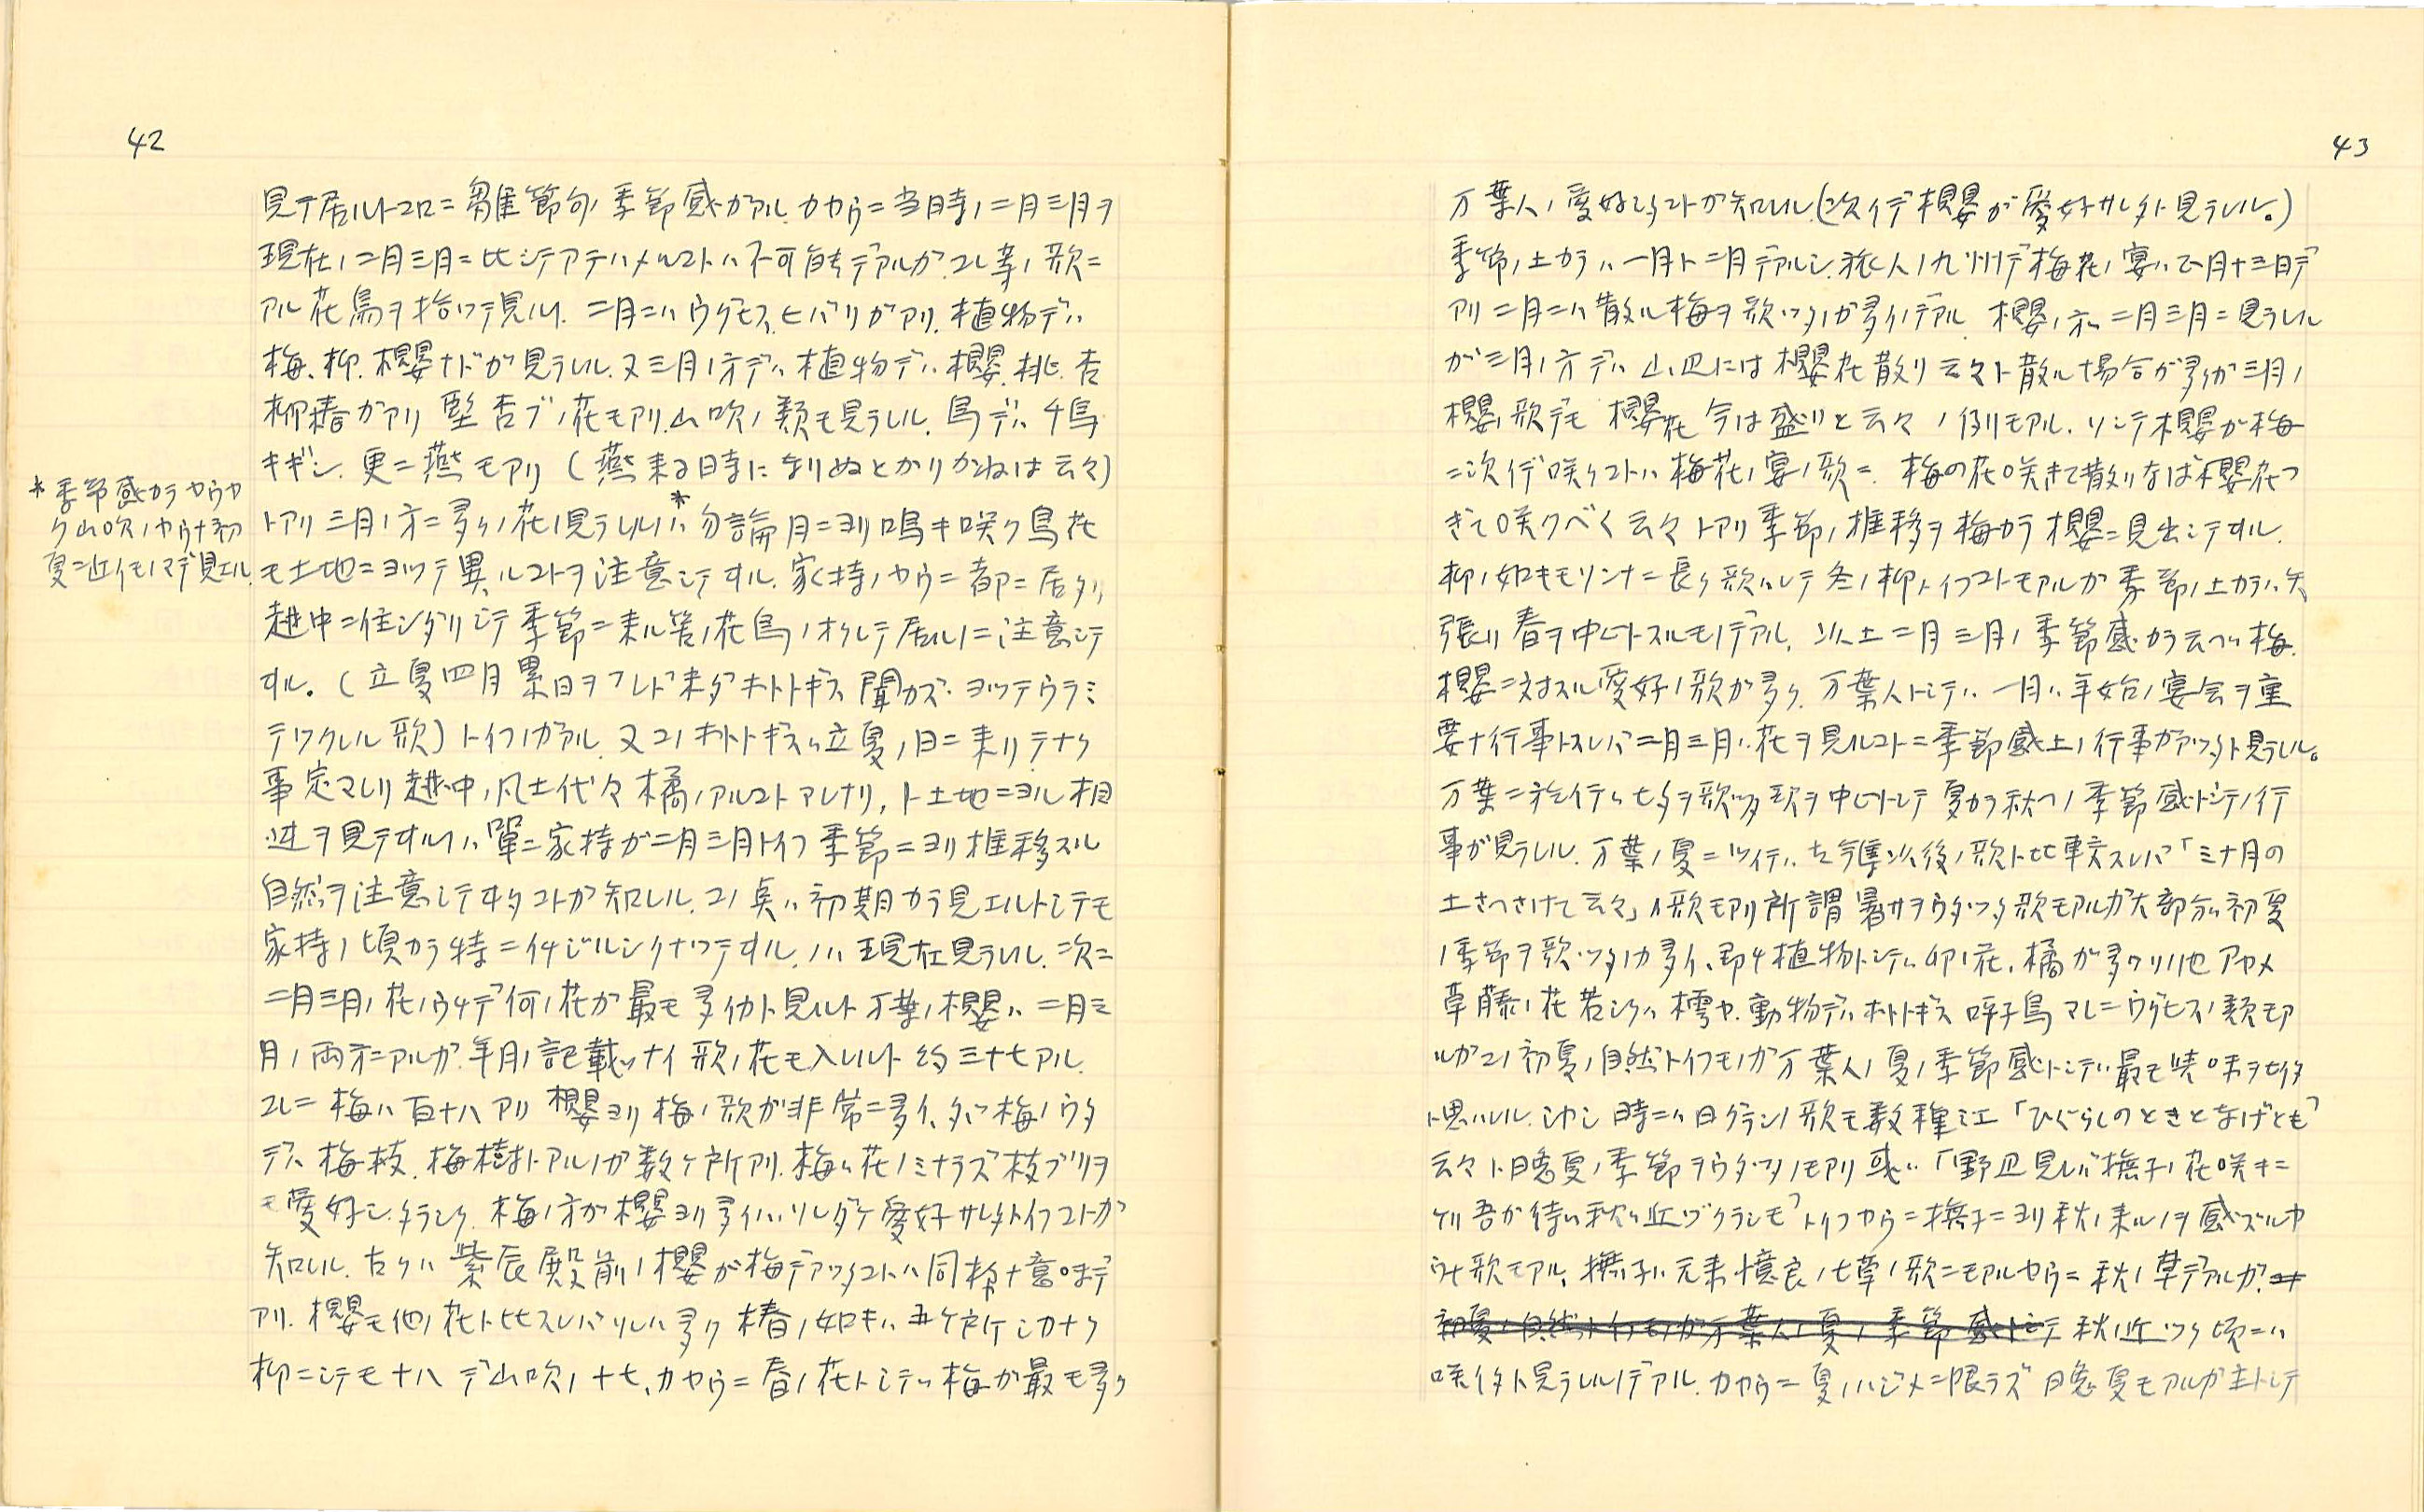 42
見テ居ルトコロニ雛節句ノ季節感ガアル カヤウニ当時ノ二月三月ヲ
現在ノ二月三月ニ比シテアテハメルコトハ不可能デアルガ コレ等ノ歌ニ
アル花鳥ヲ拾ツテ見ル、二月ニハウグヒス、ヒバリガアリ、植物デハ
梅、柳、櫻ナドガ見ラレル、又三月ノ方デハ植物デハ櫻、桃、杏
柳椿ガアリ 堅香ブノ花モアリ、山吹ノ類モ見ラレル、鳥デハ千鳥
キギシ、更ニ燕モアリ(燕来る時になりぬとかりがねは云々)
トアリ三月ノ方ニ多クノ花ノ見ラレルノハ*勿論月ニヨリ鳴キ咲ク鳥花
*季節感カラヤウヤ
ク山吹ノヤウナ初
夏ニ近イモノマデ見エル
モ土地ニヨツテ異ルコトヲ注意シテヰル、家持ノヤウニ都ニ居タリ
越中ニ住ンダリシテ季節ニ来ル筈ノ花鳥ノオクレテ居ルノニ注意シテ
ヰル。(立夏四月累日ヲフレド未ダホトトギス聞カズ・ヨツテウラミ
テツクレル歌)トイフノガアル、又コノホトトギスハ立夏ノ日ニ来リテナク
事定マレリ越中ノ風土代々橘ノアルコトマレナリ、ト土地ニヨル相
違ヲ見テヰルノハ單ニ家持ガ二月三月トイフ季節ニヨリ推移スル
自然ヲ注意シテヰタコトガ知レル、コノ点ハ初期カラ見エルトシテモ
家持ノ頃カラ特ニイチジルシクナツテヰル、ノハ現在見ラレル、次ニ
二月三月ノ花ノウチデ何ノ花ガ最モ多イカト見ルト万葉ノ櫻ハ二月三
月ノ両方ニアルガ 年月ノ記載ノナイ歌ノ花モ入レルト約三十七アル、
コレニ梅ハ百十八アリ 櫻ヨリ梅ノ歌ガ非常ニ多イ、タヾ梅ノウタ
デハ梅枝、梅樹トアルノガ数ケ所アリ、梅ハ花ノミナラズ枝ブリヲ
モ愛好シタラシク、梅ノ方ガ櫻ヨリ多イノハソレダケ愛好サレタトイフコトガ
知レル、古クハ紫辰殿前ノ櫻ガ梅デアツタコトハ同様ナ意味デ
アリ、櫻モ他ノ花ト比スレバソレハ多ク椿ノ如キハ五ケ所シカナク
柳ニシテモ十八デ山吹ノ十七、カヤウニ春ノ花トシテハ梅ガ最モ多ク
43
万葉人ノ愛好シタコトガ知レル、(次イデ櫻ガ愛好サレタト見ラレル。)
季節ノ上カラハ一月ト二月デアルシ、旅人ノ九州デ梅花ノ宴ハ正月十三日デ
アリ二月ニハ散ル梅ヲ歌ツタノガ多イノデアル 櫻ノ方ハ二月三月ニ見ラレル
ガ三月ノ方デハ山辺には櫻花散り云々ト散ル場合ガ多イガ三月ノ
櫻ノ歌デモ 櫻花今は盛りと云々ノ例モアル、ソシテ櫻ガ梅
ニ次イデ咲クコトハ梅花ノ宴ノ歌ニ、梅の花咲きて散りなば櫻花つ
ぎて咲くべく云々トアリ季節ノ推移ヲ梅カラ櫻ニ見出シテヰル、
柳ノ如キモソンナニ長ク歌ハレテ冬ノ柳トイフコトモアルガ季節ノ上カラハ矢
張リ春ヲ中心トスルモノデアル、以上二月三月ノ季節感カラ云ヘバ梅、
櫻ニ対スル愛好ノ歌ガ多ク、万葉人トシテハ一月ハ年始ノ宴会ヲ重
要ナ行事トスレバ二月三月ハ花ヲ見ルコトニ季節感上ノ行事ガアツタト見ラレル。
万葉ニ於イテハ七夕ヲ歌ツタ歌ヲ中心トシテ夏カラ秋ヘノ季節感トシテノ行
事ガ見ラレル、万葉ノ夏ニツイテハ古今集以後ノ歌ト比較スレバ「ミナ月の
土さへさけて云々」ノ歌モアリ所謂暑サヲウタツタ歌モアルガ大部分ハ初夏
ノ季節ヲ歌ツタノガ多イ、即チ植物トシテハ卯ノ花、橘ガ多クソノ他アヤメ
草藤ノ花若シクハ樗ヤ、動物デハホトトギス呼子鳥マレニウグヒスノ類モア
ルガコノ初夏ノ自然トイフモノガ万葉人ノ夏ノ季節感トシテハ最モ興味ヲヒイタ
ト思ハレル、シカシ時ニハ日グラシノ歌モ数種ミエ「ひぐらしのときとなげども」
云々ト晩夏ノ季節ヲウタツタノモアリ 或ハ「野辺見レバ撫子ノ花咲キニ
ケリ吾ガ待ツ秋ハ近ヅクラシモ」トイフヤウニ撫子ニヨリ秋ノ来ルノヲ感ズルヤ
ウナ歌モアル、撫子ハ元来憶良ノ七草ノ歌ニモアルヤウニ秋ノ草デアルガ、コ
初夏ノ自然トイフモノガ万葉人ノ夏ノ季節感トシテ 秋ノ近ヅク頃ニハ
咲イタト見ラレルノデアル、カヤウニ夏ノハジメニ限ラズ晩夏モアルガ主トシテ